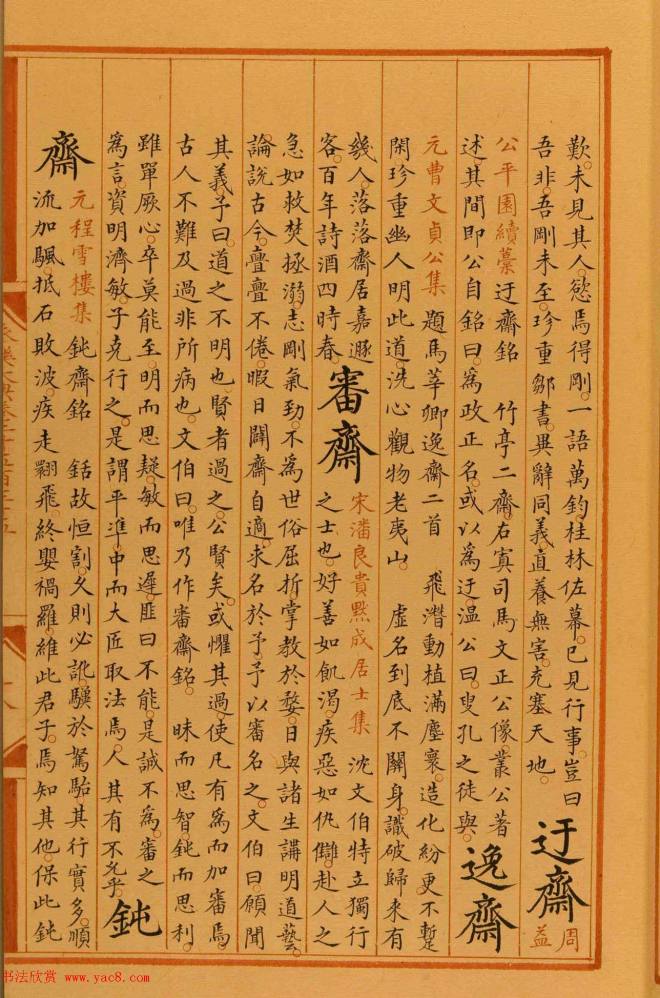 歎。未見其人。慾焉得剛。一語萬鈞。桂林佐幕。已見行事。豈曰
吾非。吾剛未至。珍重鄒書。異辭同義。直養無害。充塞天地。
迂齋
周
益
公平園續藁 迂齋銘 竹亭二齋。右寘司馬文正公像。叢公著
述。其間即公自銘曰。為政正名。或以為迂。溫公曰。叟孔之徒與。
逸齋
元曹文貞公集 題馬莘卿逸齋二首 飛潛動植滿塵寰。造化紛更不蹔
閑。珍重幽人明此道。洗心觀物老夷山。 虛名到底不關身。識破歸來有
幾人。落落齋居嘉遯
客。百年詩酒四時春。
審齋
宋潘良貴默成居士集 沈文伯特立獨行
之士也。好善如飢渴。疾惡如仇讎。赴人之
急如救焚拯溺。志剛氣勁。不為世俗屈折。掌教於婺。日與諸生講明道藝。
論說古今。亹亹不倦。暇日闢齋自適。求名於予。予以審名之。文伯曰。願聞
其義。予曰。道之不明也。賢者過之。公賢矣。或懼其過。使凡有為而加審焉。
古人不難及。過非所病也。文伯曰。唯。乃作審齋銘。 昧而思智。鈍而思利。
雖單厥心。卒莫能至。明而思疑。敏而思遲。匪曰不能。是誠不為。審之
為言。資明濟敏。子克行之。是謂平準。中而大匠取法焉。人其有不允乎。
鈍
齋
元程雪樓集 鈍齋銘 銛故恒割。久則必訛。驥於駑駘。其行實多。順
流加颿。抵石敗波。疾走翾飛。終嬰禍羅。維此君子。焉知其他。保此鈍
书法欣赏 www.yac8.com